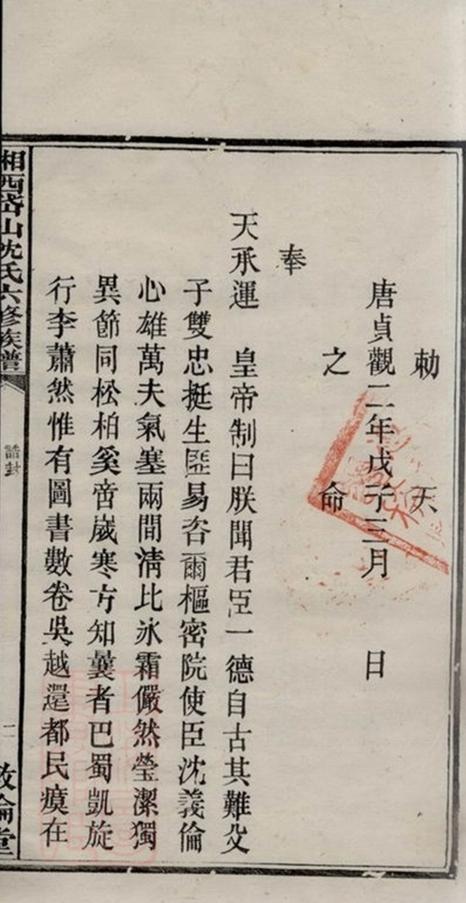 勅　天
唐貞觀二年戊子三月　日
之　命
奉
天承運　皇帝制曰朕聞君臣一德自古其難父
子雙忠挺生匪易咨爾樞密院使臣沈義倫
心雄萬夫氣塞兩間清比冰霜儼然瑩潔獨
異節同松柏奚啻嵗寒方知曩者巴蜀凱旋
行李蕭然惟有圖書數卷吳越還都民瘼在
湘西岱山沈氏六修族譜
誥封
二
敦倫堂